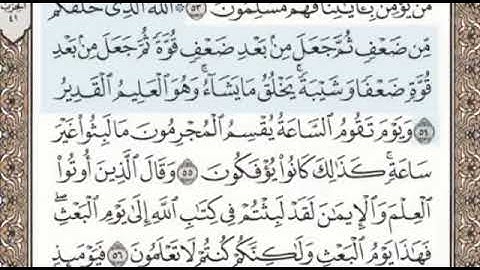 مَّن يُؤْمِنُ بِـَٔايَٰتِنَا فَهُم مُّسْلِمُونَ ٥٣ ۞ ٱللَّهُ ٱلَّذِى خَلَقَكُم
مِّن ضَعْفٍ ثُمَّ جَعَلَ مِنۢ بَعْدِ ضَعْفٍ قُوَّةً ثُمَّ جَعَلَ مِنۢ بَعْدِ
قُوَّةٍ ضَعْفًا وَشَيْبَةً ۚ يَخْلُقُ مَا يَشَآءُ ۖ وَهُوَ ٱلْعَلِيمُ ٱلْقَدِيرُ
٥٤ وَيَوْمَ تَقُومُ ٱلسَّاعَةُ يُقْسِمُ ٱلْمُجْرِمُونَ مَا لَبِثُوا۟ غَيْرَ
سَاعَةٍ ۚ كَذَٰلِكَ كَانُوا۟ يُؤْفَكُونَ ٥٥ وَقَالَ ٱلَّذِينَ أُوتُوا۟
ٱلْعِلْمَ وَٱلْإِيمَٰنَ لَقَدْ لَبِثْتُمْ فِى كِتَٰبِ ٱللَّهِ إِلَىٰ يَوْمِ ٱلْبَعْثِ ۖ
فَهَٰذَا يَوْمُ ٱلْبَعْثِ وَلَٰكِنَّكُمْ كُنتُمْ لَا تَعْلَمُونَ ٥٦ فَيَوْمَئِذٍ
الحزب
٤١